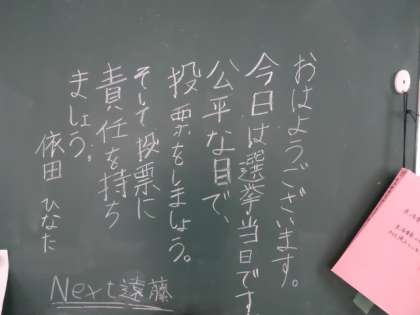 おはようございます。
今日は選挙当日です
公平な目で、
投票をしましょう。
そして投票に
責任を持ち
ましょう。
依田 ひなた
Next遠藤